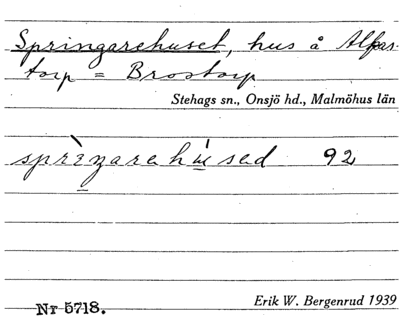 Springarehuset, hus å Alfas-
torp = Brostorp
Stehags sn., Onsjö hd., Malmöhus län
sprìŋarehúsed 92
Nr 5718.
Erik W. Bergenrud 1939